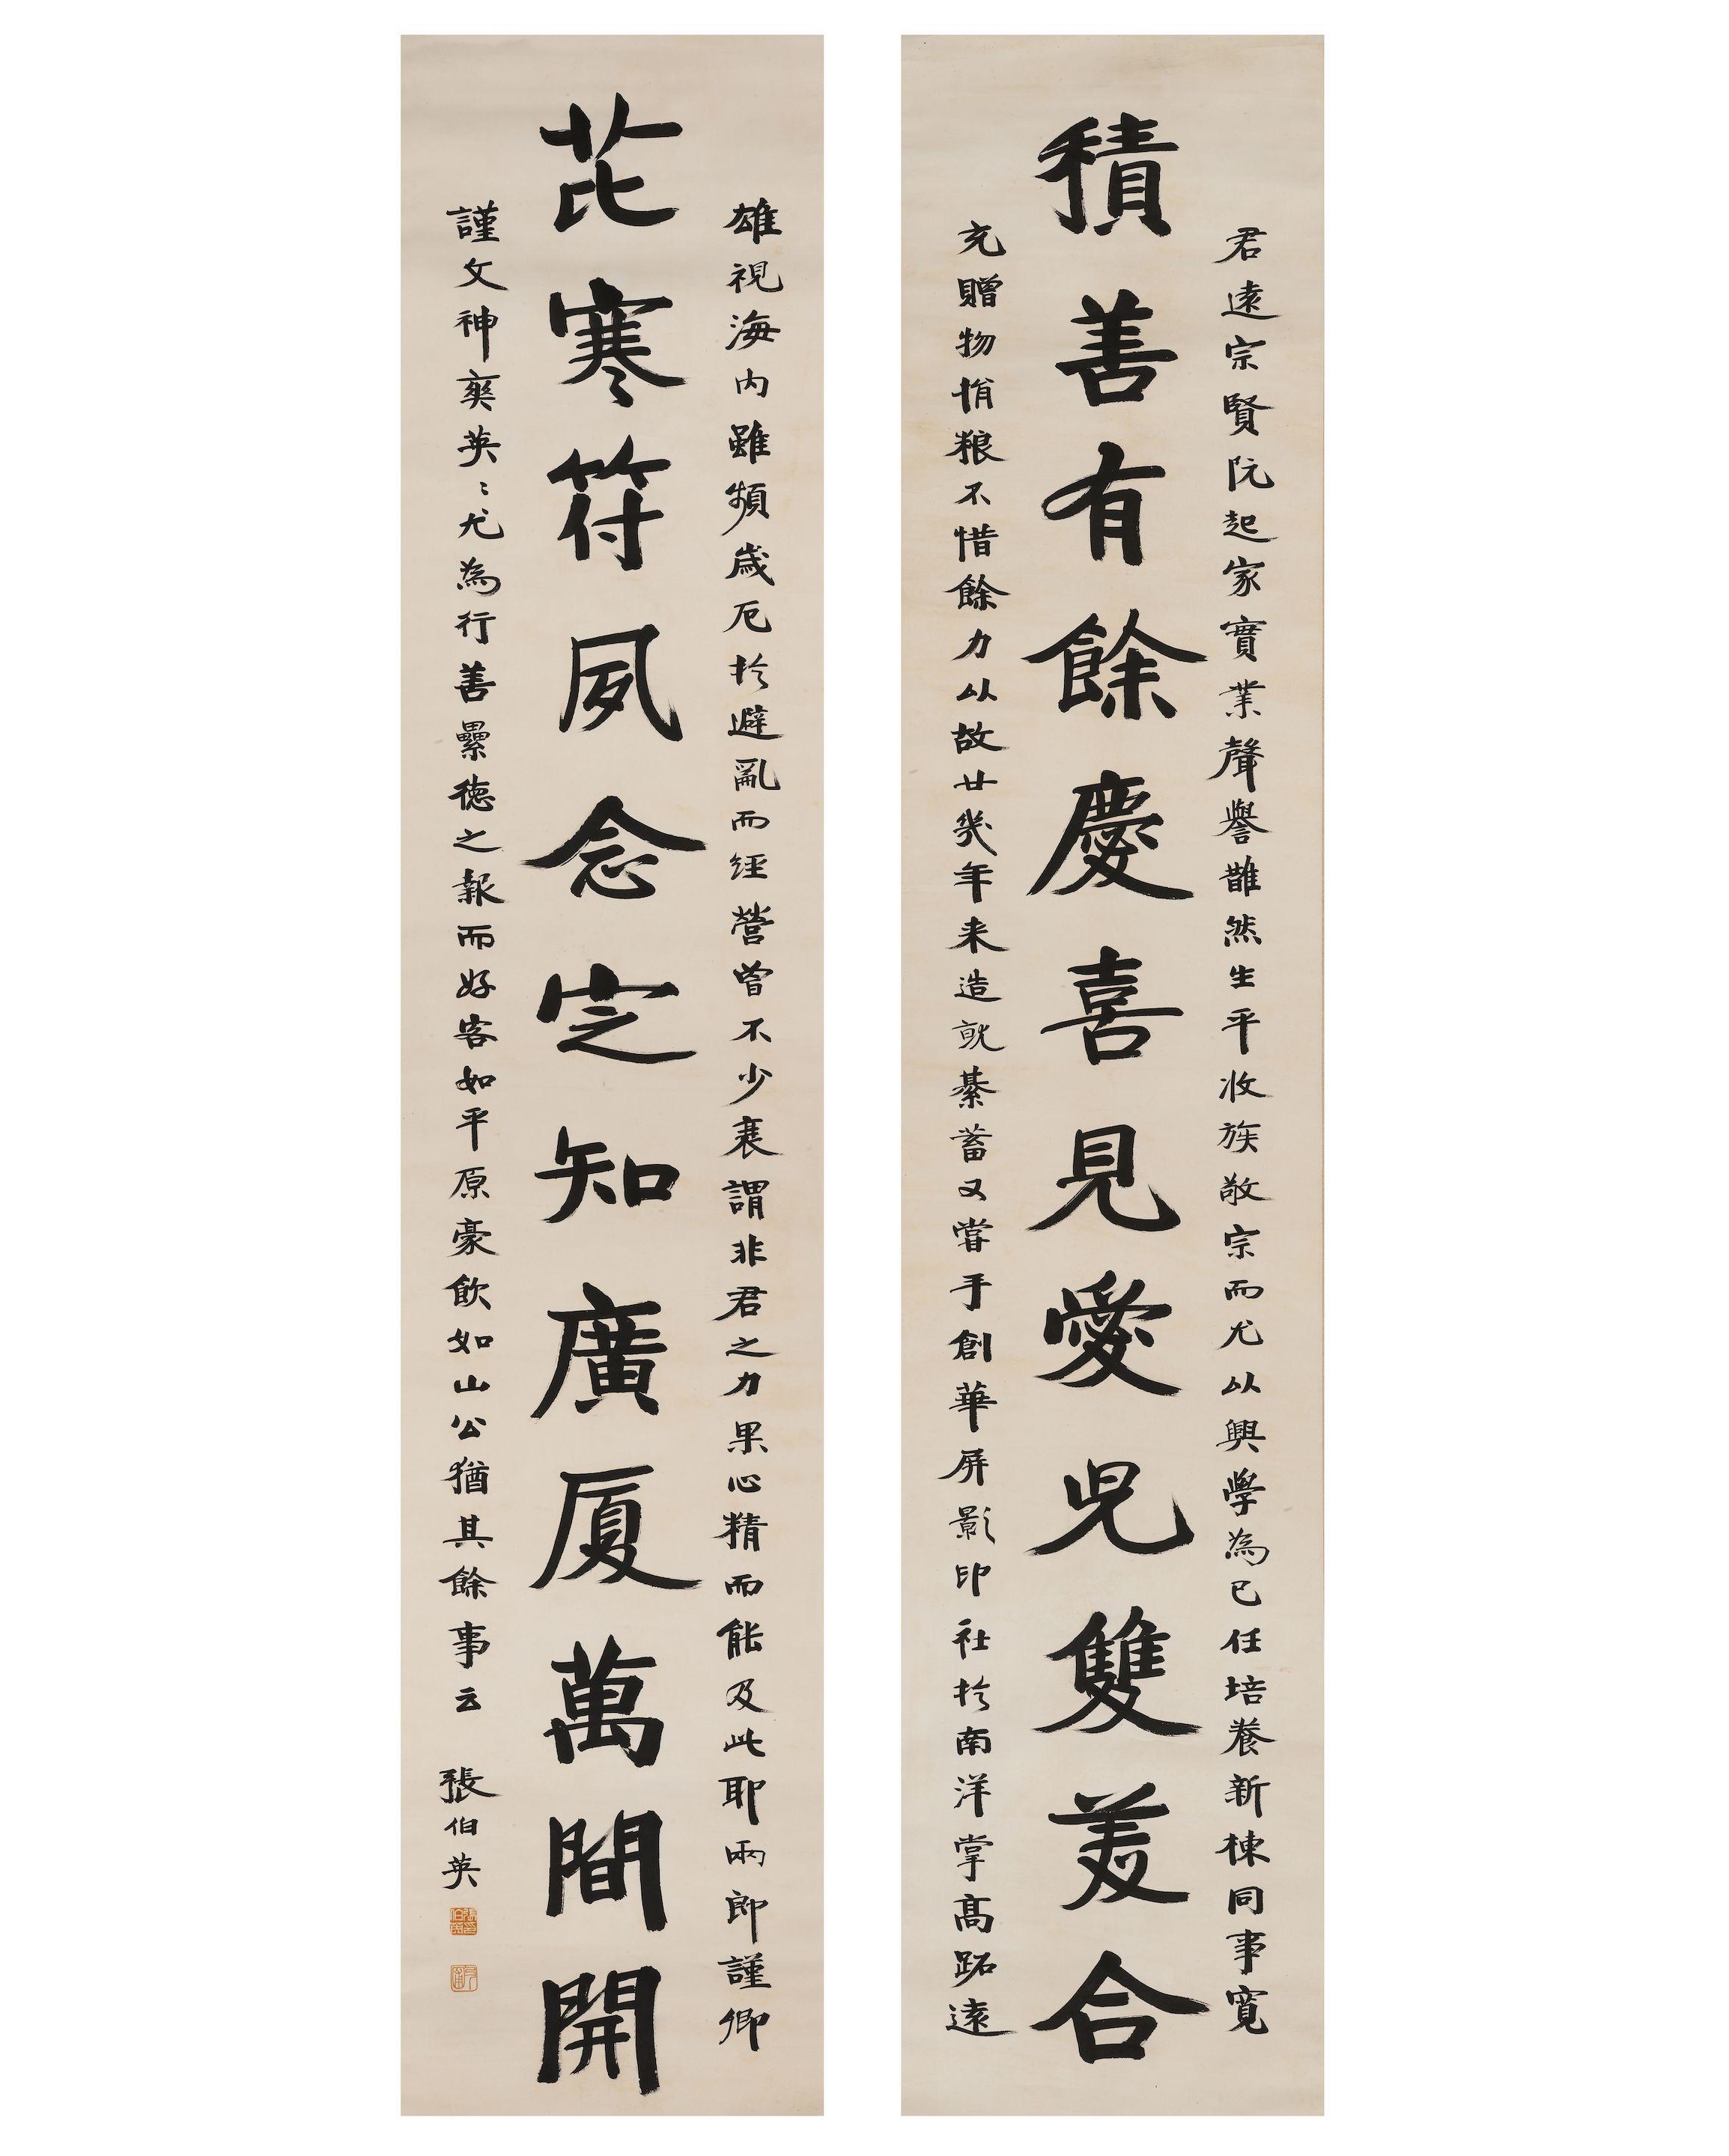 君遠宗賢阮起家實業聲譽䧿然生平收族敬宗而尤以興學為已任培養新棟同事寬
積善有餘慶喜見愛兒雙美合
充贈物捐粮不惜餘力以故廿幾年来造就綦蓄又嘗手創華屏影印社於南洋掌高跖遠
雄視海内雖頻歲厄於避亂而經營曾不少衰謂非君之力果心精而能及此耶兩郎謹卿
芘寒符夙念定知廣厦萬間開
謹文神爽英〻尤為行善纍德之報而好客如平原豪飲如山公猶其餘事云 張伯英